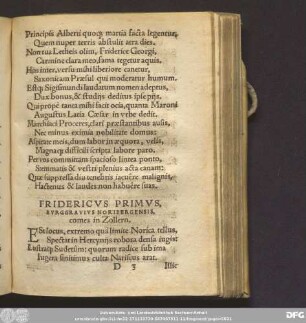 Principis Alberti quoq; martia facta legentur,
Quem nuper terris abstulit atra dies.
Non tua Letheis olim, Friderice Georgi,
Carmine clara meo, fama tegetur aquis.
Hinc inter, versu mihi liberiore canetur,
Saxonicam Præsul qui moderatur humum.
Estq; Sigismundi laudarum nomen adeptus,
Dux bonus, & studijs deditus ipse pijs.
Qui propè tanta mihi facit ocia, quanta Maroni
Augustus Latia Cæsar in vrbe dedit.
Marchiaci Proceres, clari præstantibus ausis,
Nec minus eximia nobilitate domus:
Aspirate meis, dum labor in æquora, velis,
Magnaq; difficili scripta labore pato.
Per vos committam spacioso lintea ponto,
Summatis & vestri plenius acta canam:
Quæ suppressa diu tenebris iacuêre malignis,
Hactenus & laudes non habuêre suas.
FRIDERICVS PRIMVS,
BVRGGRAVIVS NORIBERGENSIS,
comes in Zollern.
Est locus, extremo quà limite Norica tellus,
Spectat in Hercynijs robora densa iugis:
Lustratq; Sudetum: quorum radice sub ima
Iugera finitimus culta Nariscus arat.
D 3 Illic